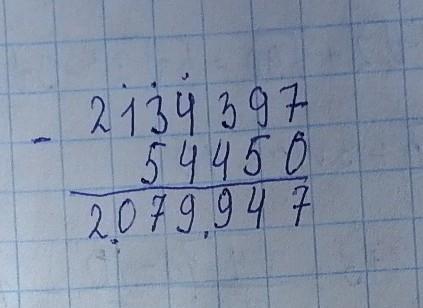 2134397
- 54450
2.079.947